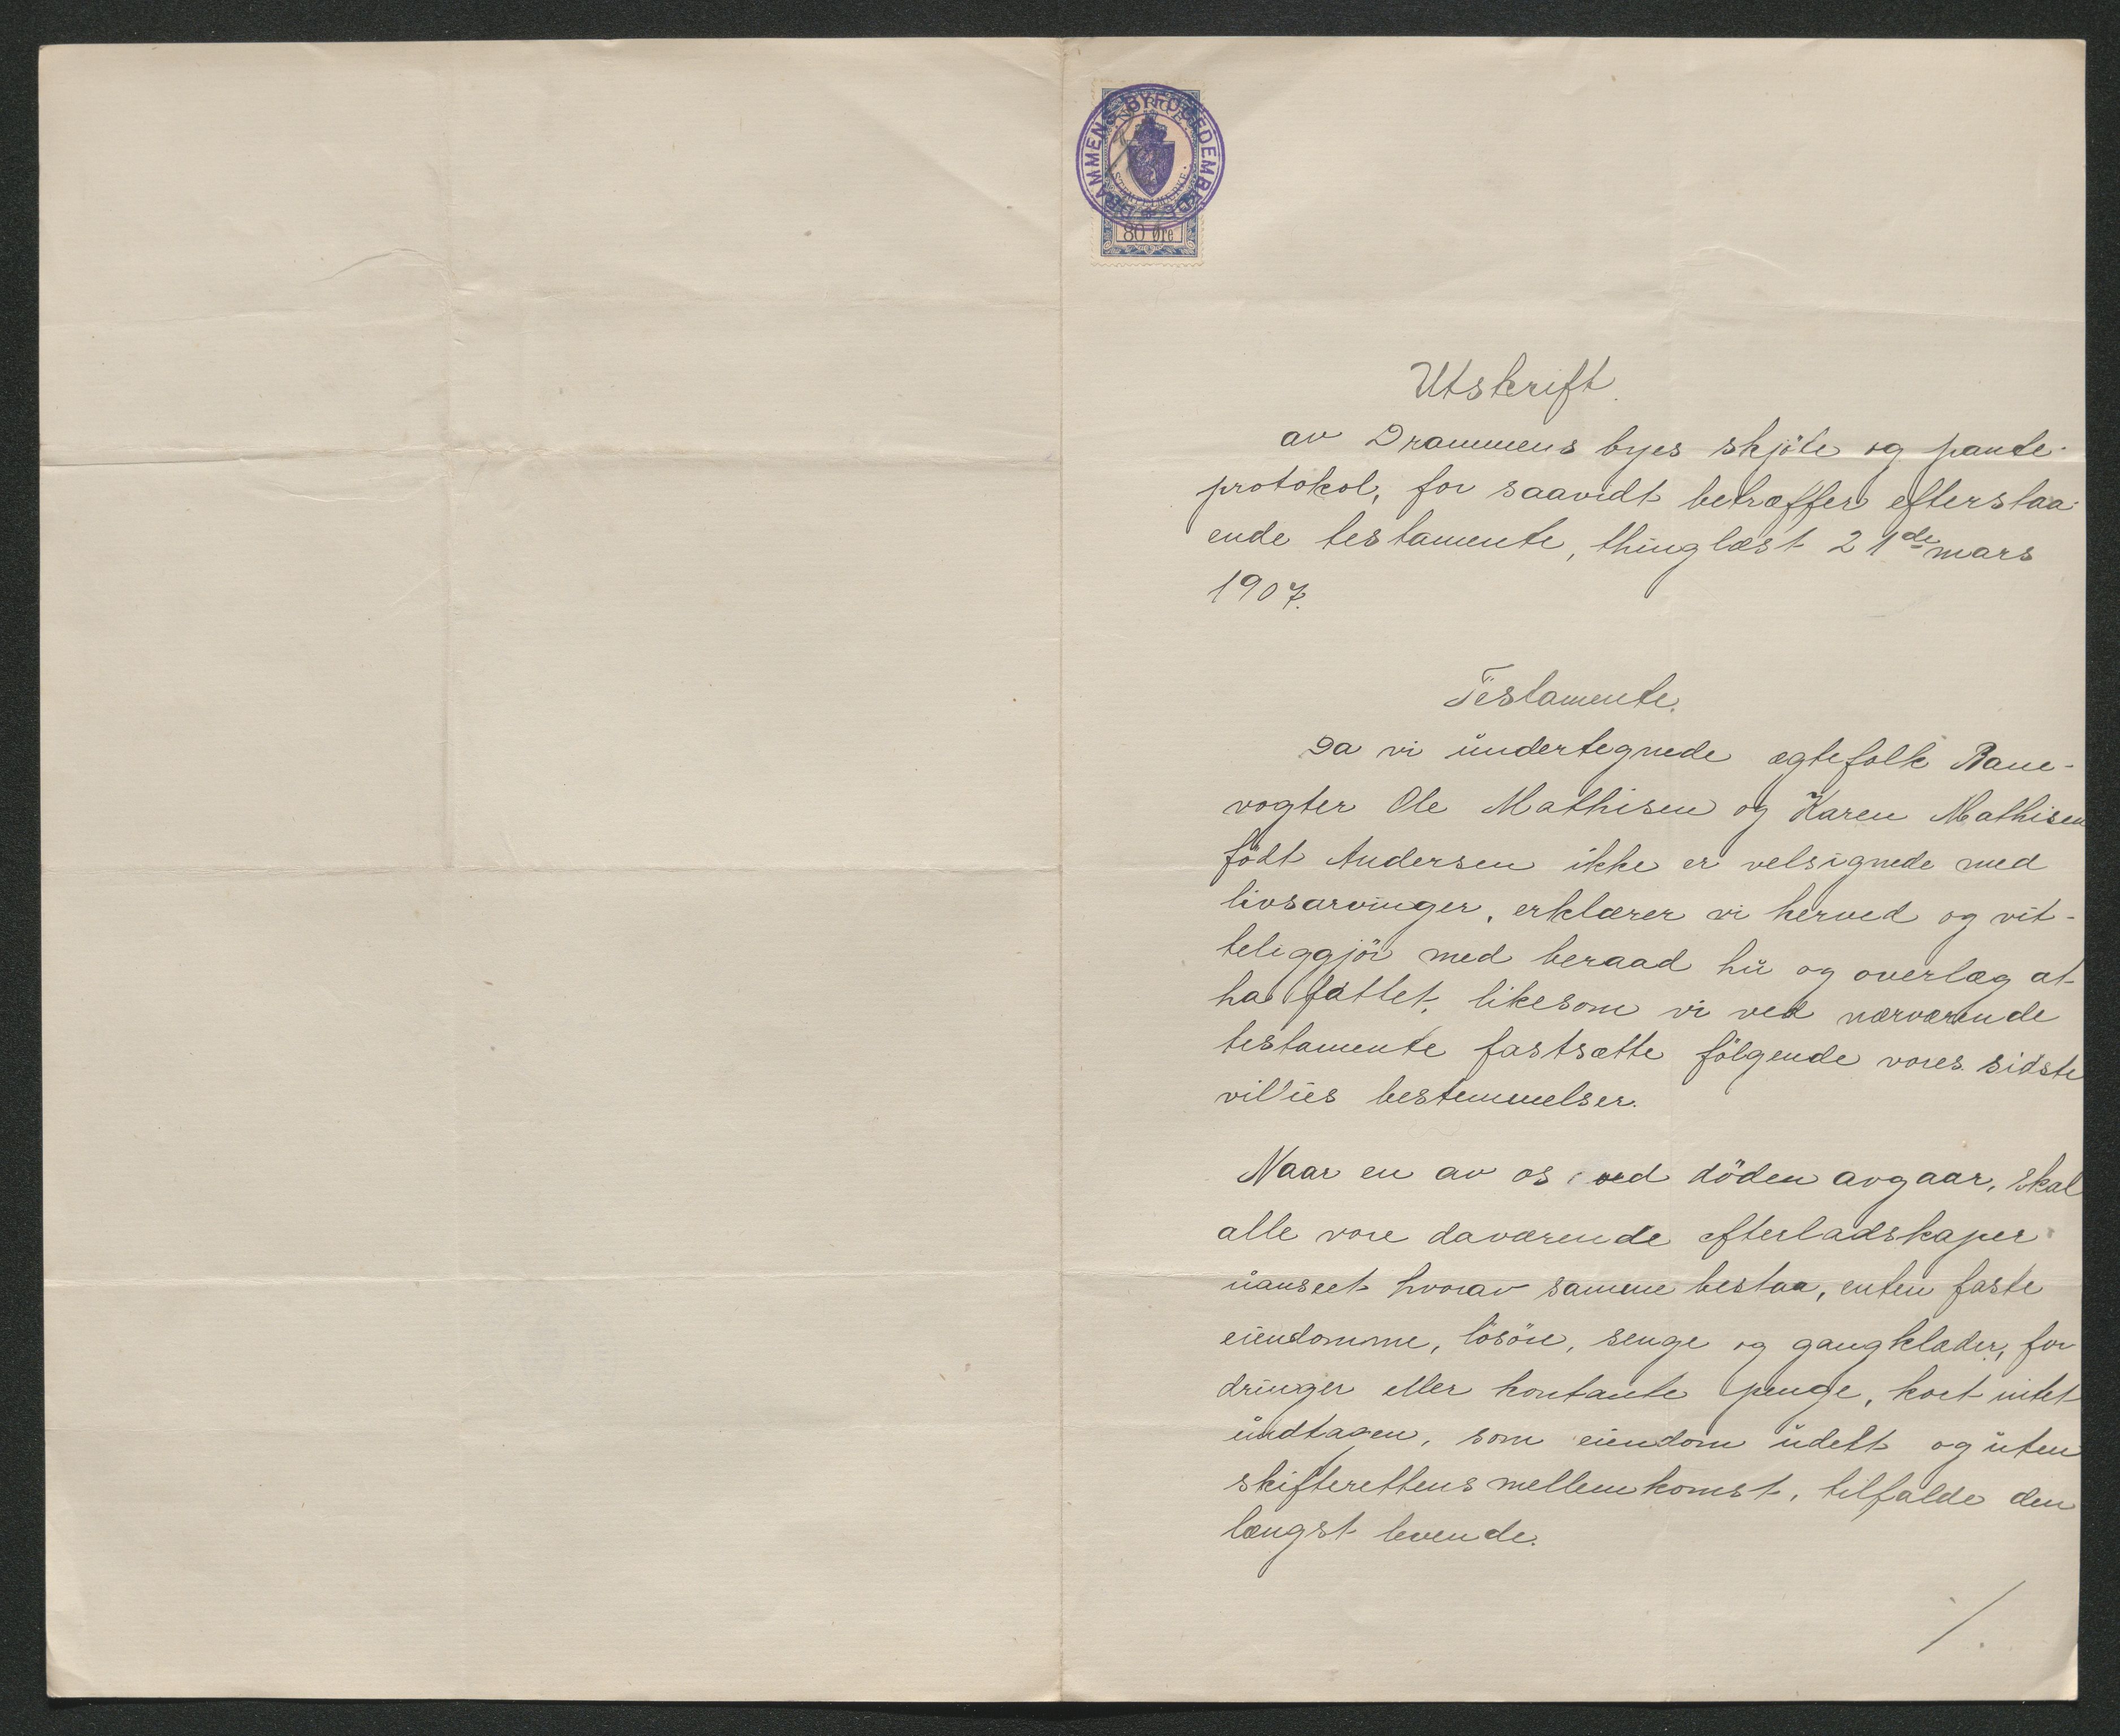 DRAMMENS BYFOGEDEMBEDE
NORGE
STEMPELMERKE
80 Øre
Utskrift.
av Drammens byes skjöte og pante-
protokol, for saavidt betræffer efterstaa-
ende testamente, thinglæst 21de mars
1907.
Testamente.
Da vi undertegnede egtefolk Bane-
vogter Ole Mathisen og Karen Mathisen
födt Andersen ikke er velsignede med
livsarvinger, erklærer vi herved og vit-
teliggjör med beraad hu og overlæg at
ha fattet, likesom vi ved nærværende
testamente fastsætte fölgende vores sidste
villies bestemmelser.
Naar en av os ved döden avgaar, skal
alle vore daværende efterladskaper
uanseet hvorav samme bestaa, enten faste
eiendomme, lösöre, senge og gangklæder, for
dringer eller kontante penge, kort intet
undtagen, som eiendom udelt og uten
skifterettens mellemkomst, tilfalde den
længst levende.
/.